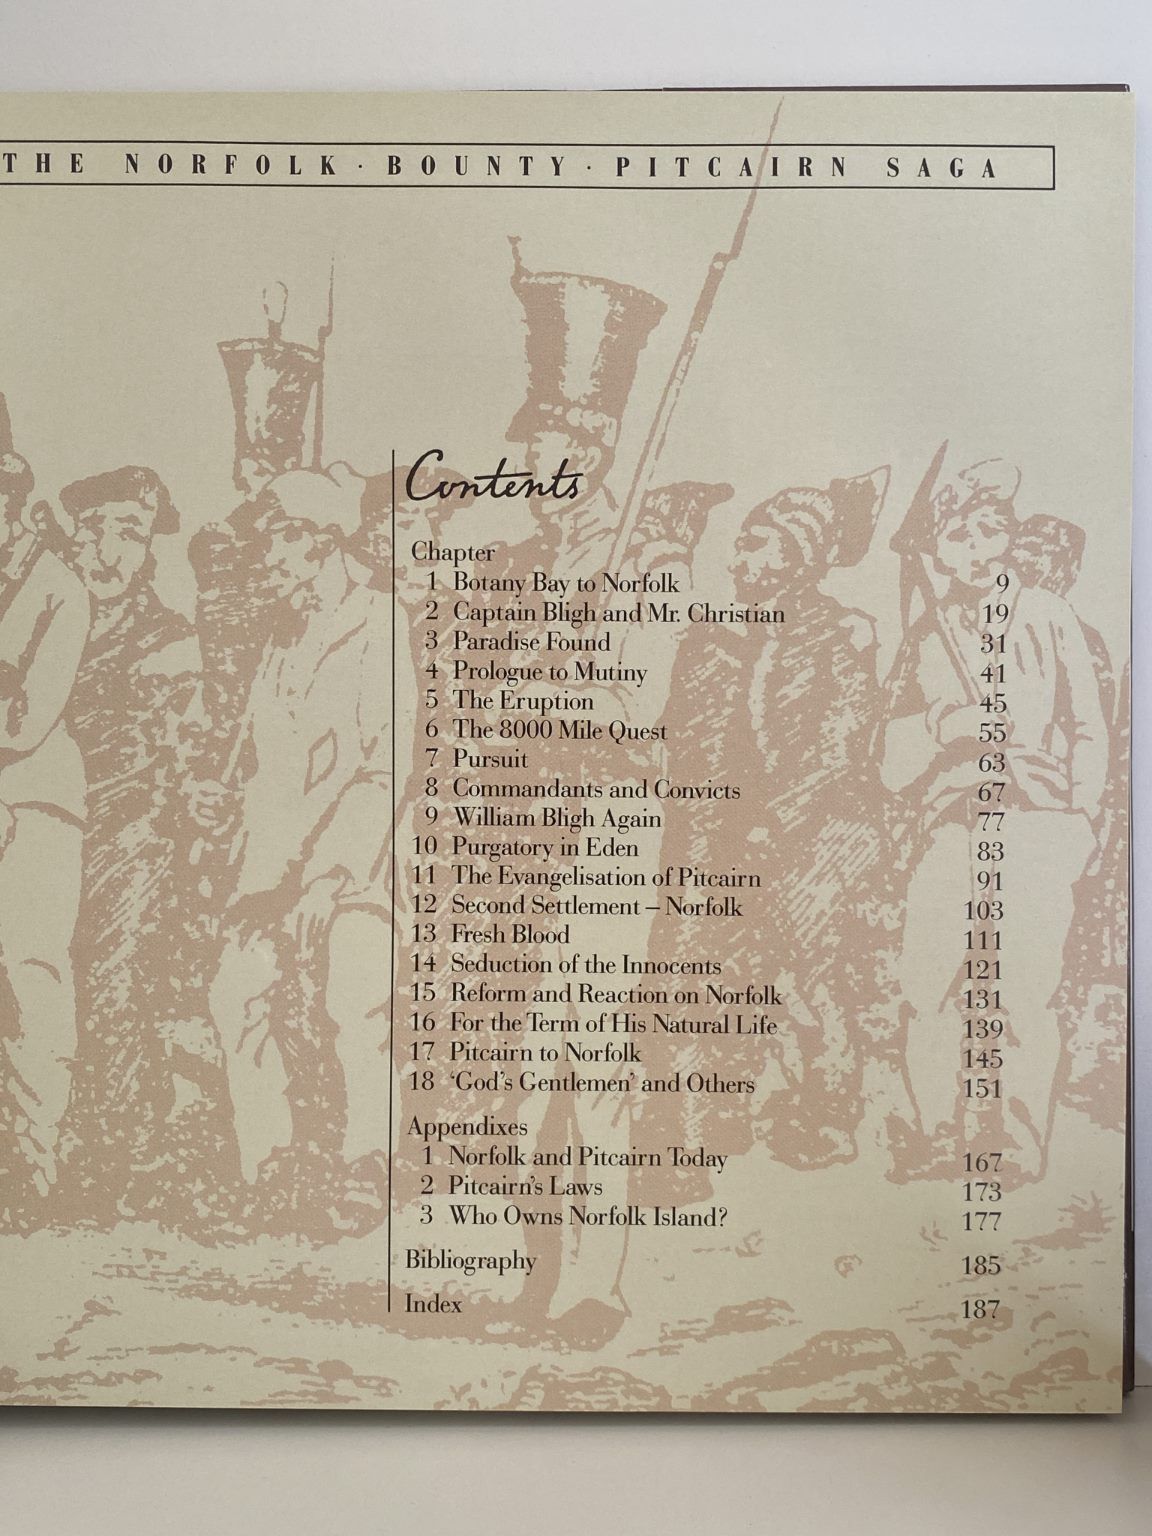 THE NORFOLK · BOUNTY · PITCAIRN SAGA
Contents
Chapter
1 Botany Bay to Norfolk 9
2 Captain Bligh and Mr. Christian 19
3 Paradise Found 31
4 Prologue to Mutiny 41
5 The Eruption 45
6 The 8000 Mile Quest 55
7 Pursuit 63
8 Commandants and Convicts 67
9 William Bligh Again 77
10 Purgatory in Eden 83
11 The Evangelisation of Pitcairn 91
12 Second Settlement – Norfolk 103
13 Fresh Blood 111
14 Seduction of the Innocents 121
15 Reform and Reaction on Norfolk 131
16 For the Term of His Natural Life 139
17 Pitcairn to Norfolk 145
18 ‘God’s Gentlemen’ and Others 151
Appendixes
1 Norfolk and Pitcairn Today 167
2 Pitcairn’s Laws 173
3 Who Owns Norfolk Island? 177
Bibliography 185
Index 187